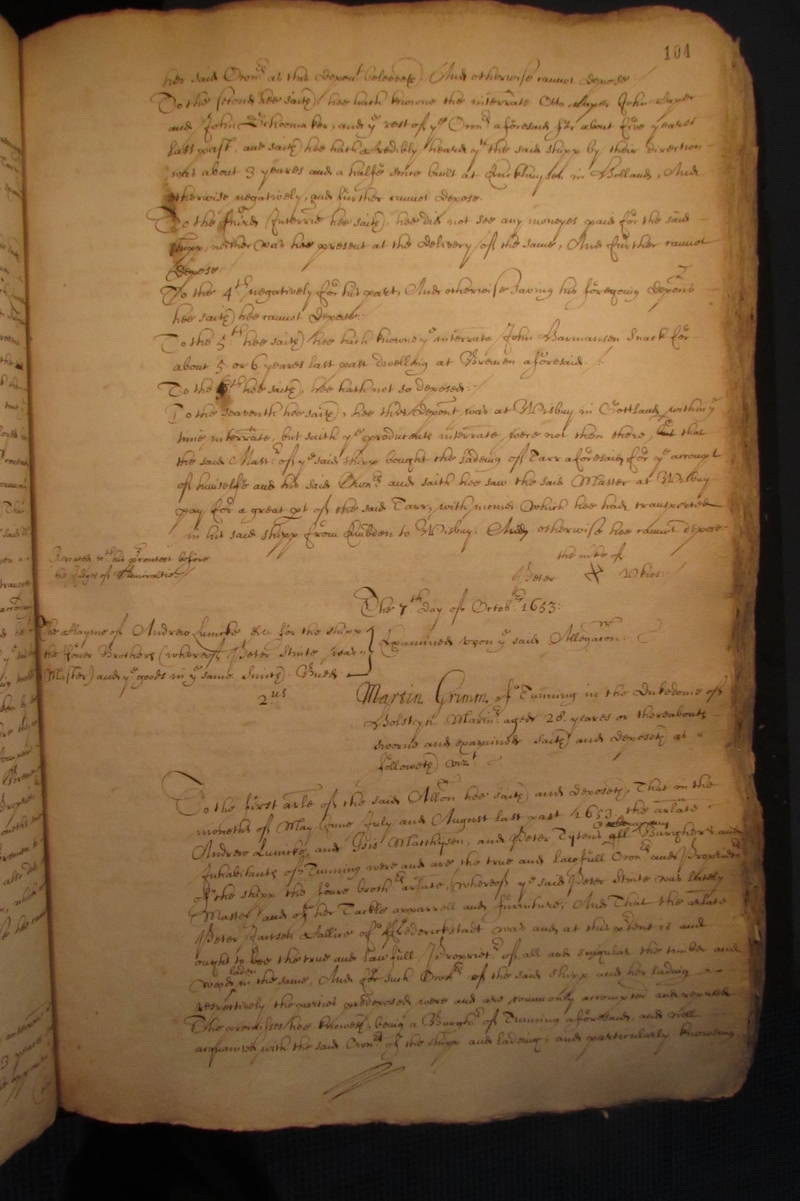 104
her said Owners as this deponent beleeveth. And otherwise cannot depose./
To the second hee saith, hee hath knowne the interrate Otto Mayer John Mayer
and John Schoomaker, and ye rest of ye Owners aforesaid for about five yeares
last past, and saith hee hath credibly heard yt the said shipp by their direction
was about 3 yeares and a halfe since built at in Holland, And
otherwise negatively, and further cannot depose.
To the third Interrie hee saith, hee did not see any moneyes paid for the said
shipp, neither was hee present at the delivery of the same, And further cannot
depose
To the 4th negatively for his part, And otherwise saving his foregoing deponts
hee saith hee cannot depose.
To the 5th hee saith hee hath knowne ye interrate John Harmansen Snack for
about 5 or 6 yeares last past dwelling at Bremen aforesaid./
To the 6th hee saith, hee hath not so deposed./
To the seaventh hee saith, hee this depont was at Wisbuy in Gottland within ye
time interrate, but saith ye producents interrate were not then there, but that
the said Master of ye said shipp bought the ladeing of Tarr aforesaid, for ye accompt
of himselfe and his said Owners and saith hee saw the said Master at Wisbuy
pay for a great pt of the said Tarr, with moneis which hee had transported
in his said shipp from Lubden to Wisbuy. And otherwise hee cannot depose
Repeated with his before
the Judges of Admiraltie
the mke of
Peter X
The 7th day of Octobr 1653:
The clayme of Andrew Lumcke &c for the shipp
the foure Brothers (whereof Peter Stinte
Master) and ye goods in ye same. Smith. Budd
Examined upon ye said Allegaton.
2us
Martin Grimm of Tunning in the Dukedome of
Holsteyn Marinr aged 28 yeares or thereabouts
sworne and examined saith and deposeth as
followeth vizt
To the first arle of the said Allon hee saith and deposeth, That in the
moneths of May June July and August last past 1653, the arlate
Andrew Lumcke, and Matthysen, and Peter Tytens all Burghers and
Inhabitants of Tunning were and are the true and lawfull Owners and Proprietrs
of the shipp the foure brothers arlate, (whereof ye said Peter Stinte was lately
Master) and of her Tackle apparrell and furniture; And That the arlate
Peter Jansen of Frederickstadt was and at this prsent is and
ought to bee the true and lawfull Proprietr of all and singular the timber and
woods laden in the same, And for such Owners of the said shipp and her lading
respectively the parties predeposed were and are commonly accompted and reputed
The premisses hee knoweth, being a Burgher of Tunning aforesaid, and well
acquainted with the said Owners of the shipp and ladeing; and particularly knowing